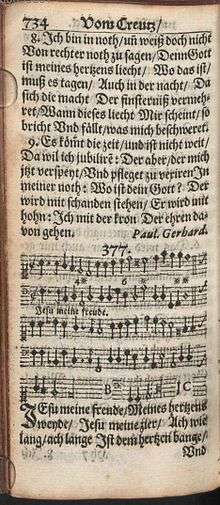 734 Vom Creutz/
8. Ich bin in noth/uñ weiß doch nicht
Von rechter noth zu sagen/Denn Gott
ist meines hertzens liecht/ Wo das ist/
muß es tagen/ Auch in der nacht/ Da
sich die macht Der finsterniß vermeh-
ret/Wann dieses liecht Mir scheint/so
bricht Und fällt/was mich beschweret.
9. Es köm̃t die zeit/und ist nicht weit/
Da wil ich jubilirẽ: Der aber/der mich
itzt verspeyt/Und pfleget zu vexiren In
meiner noth: Wo ist dein Gott? Der
wird mit schanden stehen/ Er wird mit
hohn: Ich mit der kron Der ehren da-
von gehen. Paul. Gerhard.
377.
4* 6 *
Jesu meine freude.
B C
JEsu meine freude/Meines hertzens
weyde/ Jesu meine zier/ Ach wie
lang/ach lange Ist dem hertzen bange/
Und